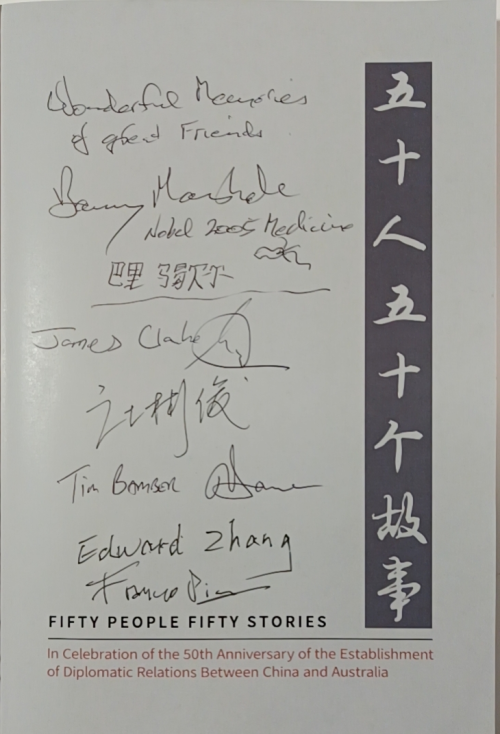 Wonderful Memories
of great Friends
Barry Marshall
Nobel 2005 Medicine
巴里 马歇尔
James Clarke
Tim Bamber
Edward Zhang
五十人五十个故事
FIFTY PEOPLE FIFTY STORIES
In Celebration of the 50th Anniversary of the Establishment
of Diplomatic Relations Between China and Australia